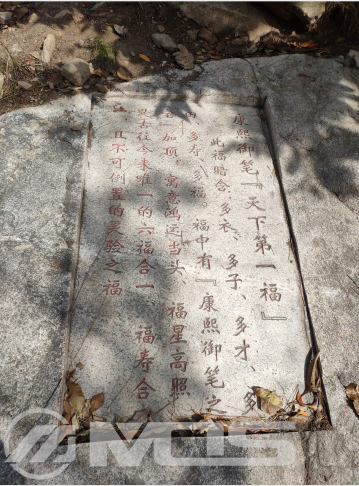 康熙御笔『天下第一福』
此福暗含、多衣、多子、多才、多
田、多寿、多福。福中有『康熙御笔之
宝』加顶。寓意鸿运当头、福星高照
是古往今来唯一的六福合一 福寿合
且不可倒置的灵验之福
MCIS